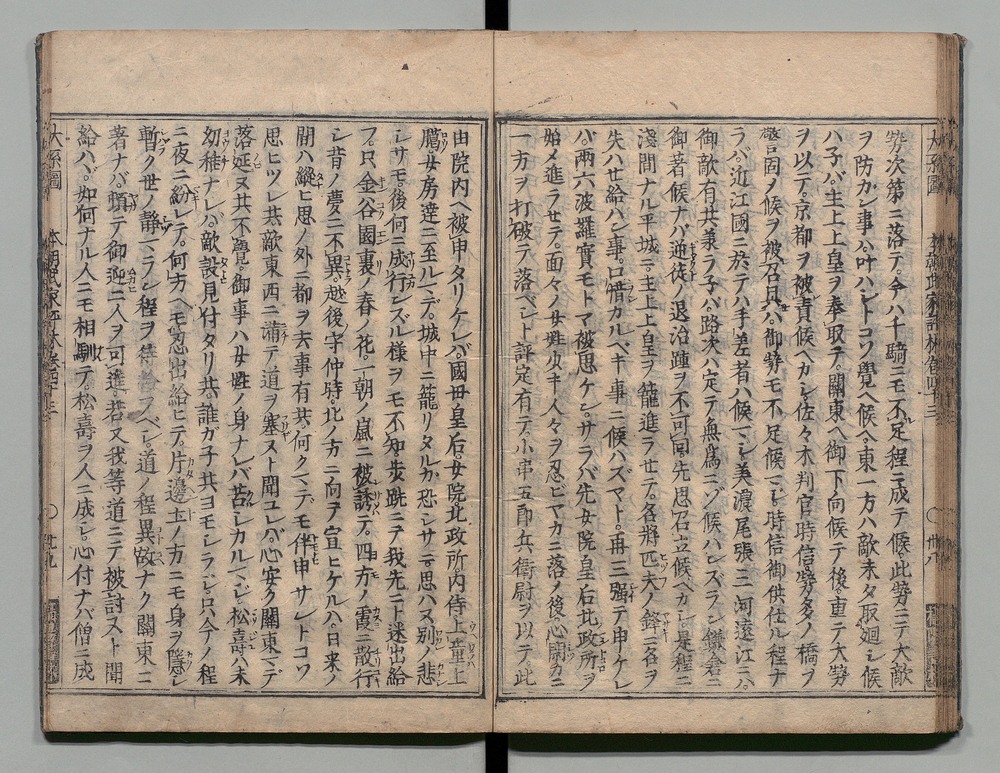 勢次第ニ落テ。今ハ千騎ニモ不足程ニ成テ候。此勢ニテ大敵
ヲ防カン事ハ叶ハントコソ覺ヘ候ヘ。東一方ハ敵未タ取廻シ候
ハ子バ。主上上皇ヲ奉取テ。關東ヘ御下向候テ後。重テ大勢
ヲ以テ。京都ヲ被責候ヘカシ。佐々木判官時信。勢多ノ橋ヲ
警固ノ候ヲ被召具バ。御勢モ不足候マシ。時信御供仕ル程ナ
ラバ。近江國ニ於テハ手差者ハ候マシ。美濃尾張三河遠江ニハ。
御敵有共兼ラ子バ。路次ハ定テ無爲ニゾ候ハンズラン。鎌倉ニ
御著候ナバ。逆徒ノ退治踵ヲ不可回。先思召立候ヘカシ。是程ニ
淺間ナル平城ニ。主上上皇ヲ籠進ラセテ。名將匹夫ノ鋒ニ名ヲ
失ハセ給ハン事。口惜カルベキ事ニ候ハズヤト。再三強テ申ケレ
バ。兩六波羅實モトマ被思ケン。サラバ先女院皇后北政所ヲ
始メ進ラセテ。面々ノ女性少キ人々ヲ忍ヒヤカニ落ノ後。心閑ニ
一方ヲ打破テ落ベシト評定有テ。小串五郎兵衛尉ヲ以テ。此
由院内ヘ被申タリケレバ。國母皇后。女院北政所。内侍上童上
﨟女房達ニ至ルマデ。城中ニ籠リタルカ。恐シサニ思ハヌ別ノ悲
シサモ。後何ニ成行ンズル様ヲモ不知。歩跣ニテ我先ニト迷出給
フ。只金谷園裏ノ春ノ花。一朝ノ嵐ニ被誘テ。四方ノ霞ニ散行
シ昔ノ夢ニ不異。越後守仲時。北ノ方ニ向ヲ宣ヒケルハ。日來ノ
間ハ縱ヒ思ノ外ニ都ヲ去事有共。何クマデモ伴申サントコソ
思ヒツレ共。敵東西ニ滿テ道ヲ塞ヌト聞ユレバ。心安ク關東マデ
落延ヌ共不覺。御事ハ女性ノ身ナレバ苦シカルマシ。松壽ハ未
幼稚ナレバ。敵設見付タリ共。誰ガ子共ヨモシラジ。只今ノ程
ニ夜ニ紛レテ。何方ヘモ忍出給ヒテ。片邊土ノ方ニモ身ヲ隱シ。
暫ク世ノ靜マラン程ヲ待給フベシ。道ノ程異故ナク關東ニ
著ナバ。頓テ御迎ニ人ヲ可進。若又我等道ニテ被討ヌト聞
給ハバ。如何ナル人ニモ相馴テ。松壽ヲ人ニ成シ。心付ナバ僧ニ成